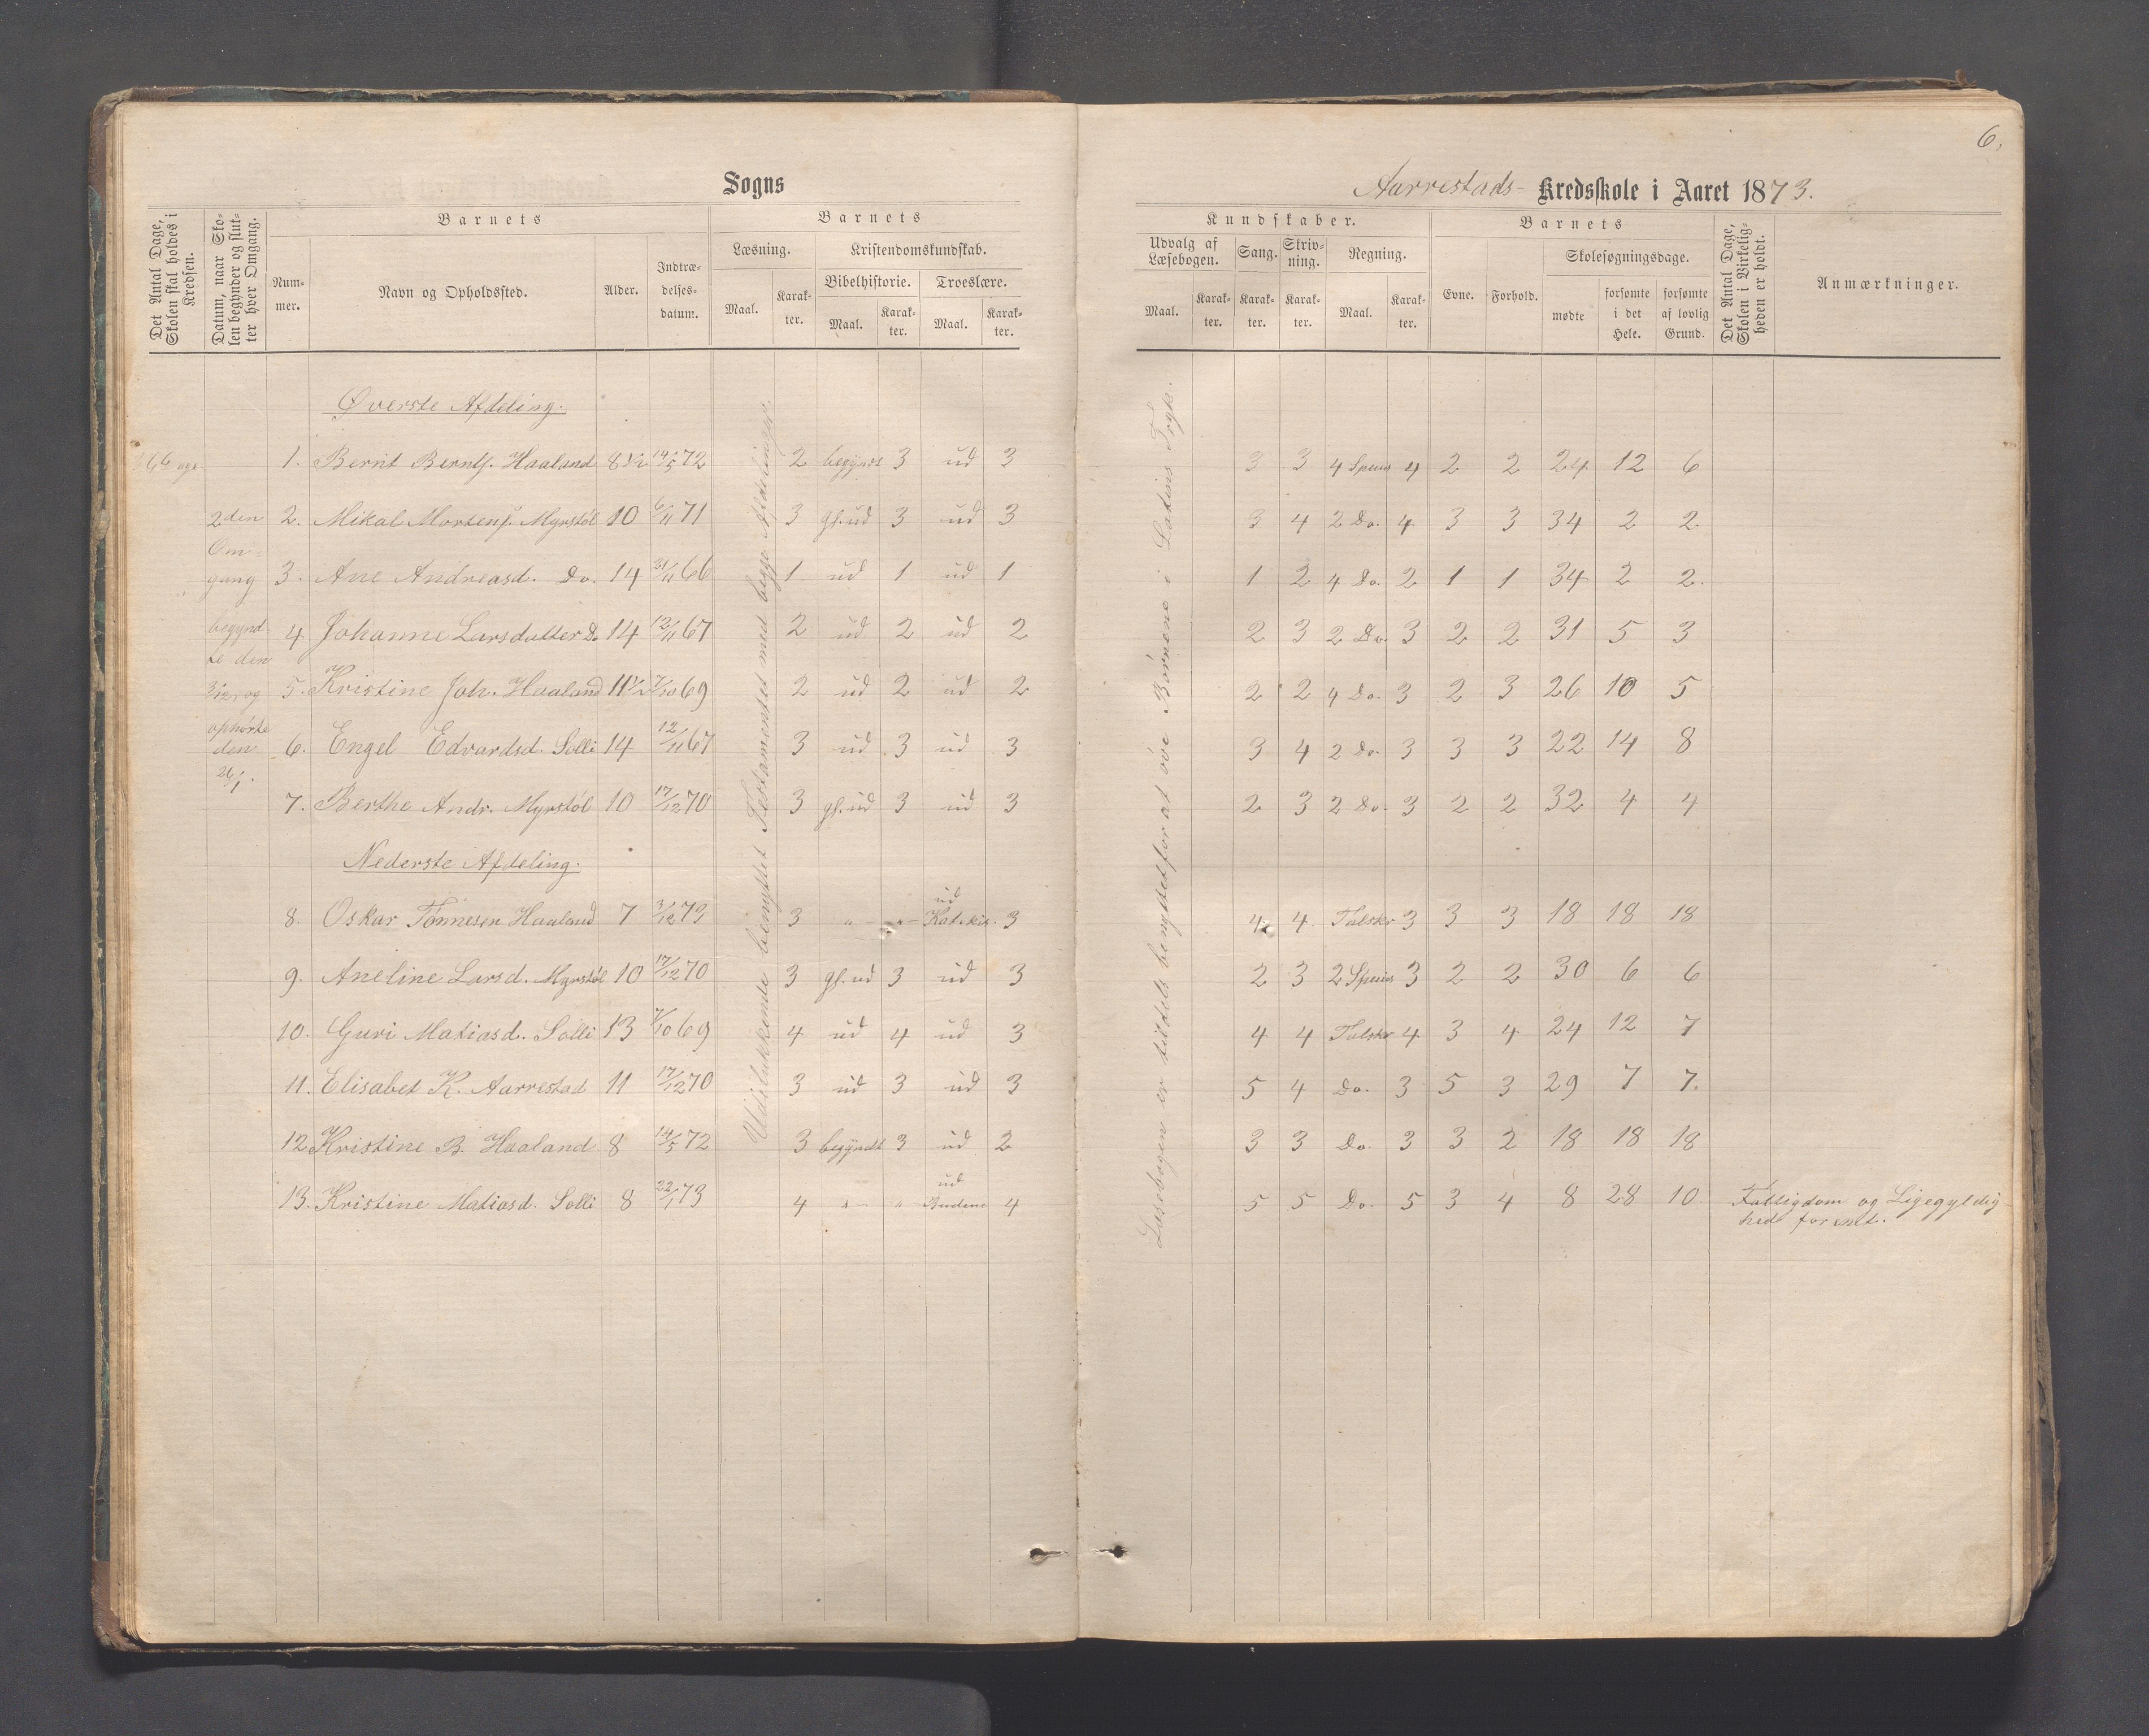 6.
Sogns
Aarrestads- Kredsskole i Aaret 1873.
Det Antal Dage, Skolen skal holdes i Kredsen.
Datum, naar Skolen begynder og slutter hver Omgang.
Barnets
Nummer.
Navn og Opholdssted.
Alder.
Indtrædelsesdatum.
Barnets
Læsning.
Maal.
Karakter.
Kristendomskundskab.
Bibelhistorie.
Maal.
Karakter.
Troeslære.
Maal.
Karakter.
Kundskaber.
Udvalg af Læsebogen.
Maal.
Karakter.
Sang.
Karakter.
Skrivning.
Karakter.
Regning.
Maal.
Karakter.
Barnets
Evne.
Forhold.
Skolesøgningsdage.
mødte
forsømte i det Hele.
forsømte af lovlig Grund.
Det Antal Dage, Skolen i Virkeligheden er holdt.
Anmærkninger.
2den
Om-
gang
begynd-
te den
3/12, og
ophørte
den
26/1.
Udelukkende benyttet Testamentet med begge Afdelinger.
Læsebogen er tildels benyttet for at øve Børnene i Latins Tryk.
Øverste Afdeling.
1. Bernt Bernts. Haaland 8 1/2 14/5 72 2 begyndt 3 ud 3 3 3 4 Spesies 4 2 2 24 12 6
2. Mikal Mortens. Myrstøl 10 6/11 71 3 gl. ud 3 ud 3 3 4 2 Do. 4 3 3 34 2 2
3. Ane Andreasd. Do. 14 21/11 66 1 ud 1 ud 1 1 2 4 Do. 2 1 1 34 2 2.
4. Johanne Larsdatter Do 14 12/11 67 2 ud 2 ud 2 2 3 2 Do. 3 2 2 31 5 3
5. Kristine Joh. Haaland 11 1/2 7/10 69 2 ud 2 ud 2 2 2 4 Do. 3 2 3 26 10 5
6. Engel Edvardsd. Solli 14 12/11 67 3 ud 3 ud 3 3 4 2 Do. 3 3 3 22 14 8
7. Berthe Andr. Myrstøl 10 17/12 70 3 gl. ud 3 ud 3 2 3 2 Do. 3 2 2 32 4 4
Nederste Afdeling.
8. Oskar Tønnesen Haaland 7 3/12 73 3 " " ud Katekis. 3 4 4 Talskr 3 3 3 18 18 18
9. Aneline Larsd. Myrstøl 10 17/12 70 3 gl. ud 3 ud 3 2 3 2 Spesies 3 2 2 30 6 6
10. Guri Matiasd. Solli 13 7/10 69 4 ud 4 ud 3 4 4 Talskr 4 3 4 24 12 7
11. Elisabet K. Aarrestad 11 17/12 70 3 ud 3 ud 3 5 4 Do. 3 5 3 29 7 7.
12. Kristine B. Haaland 8 14/5 72 3 begyndt 3 ud 2 3 3 Do. 3 3 2 18 18 18
13. Kristine Matiasd. Solli 8 22/1 73 4 " " ud Budene 4 5 5 Do. 5 3 4 8 28 10 Fattigdom og Ligegyldig-
hed forsømt.